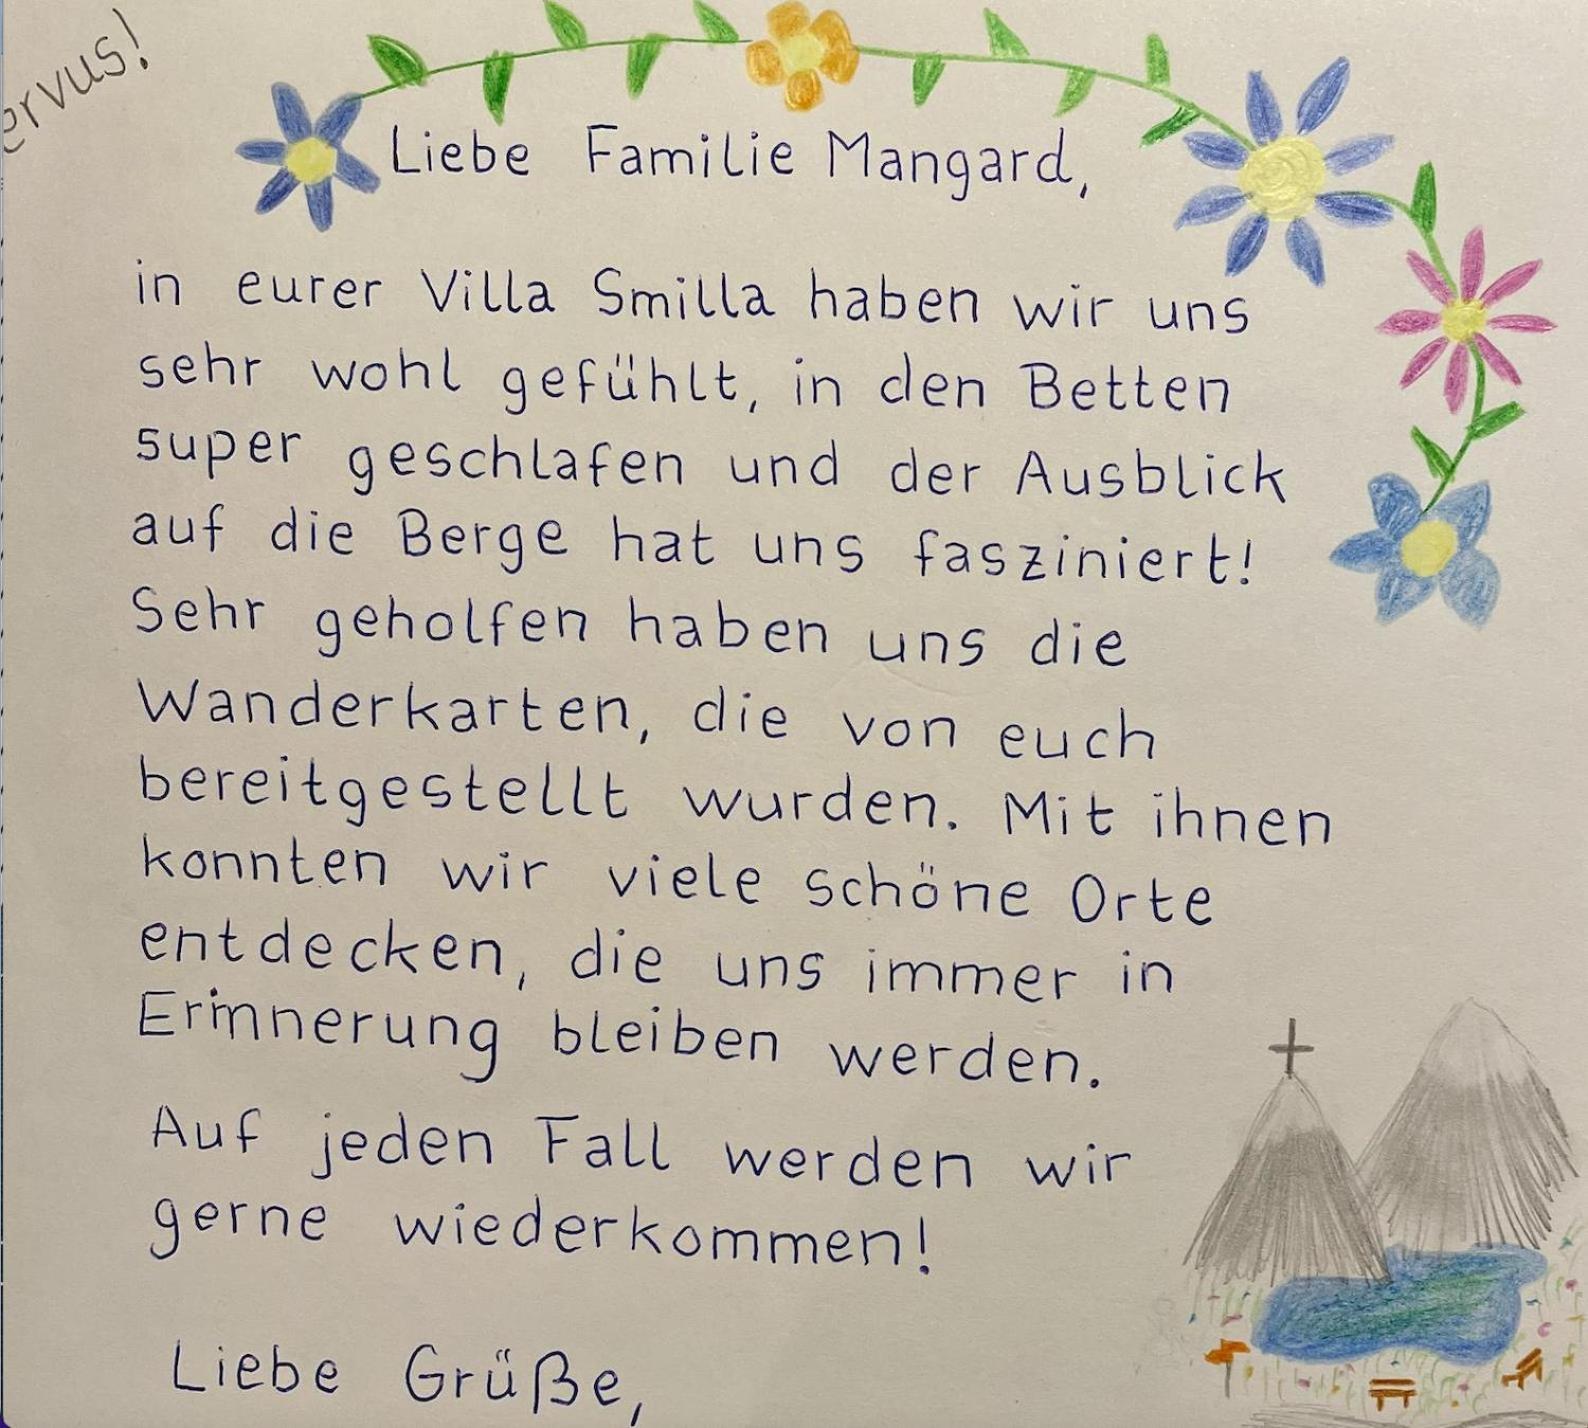 ervus!
Liebe Familie Mangard,
in eurer Villa Smilla haben wir uns
sehr wohl gefühlt, in den Betten
super geschlafen und der Ausblick
auf die Berge hat uns fasziniert!
Sehr geholfen haben uns die
Wanderkarten, die von euch
bereitgestellt wurden. Mit ihnen
konnten wir viele schöne Orte
entdecken, die uns immer in
Erinnerung bleiben werden.
Auf jeden Fall werden wir
gerne wiederkommen!
Liebe Grüße,